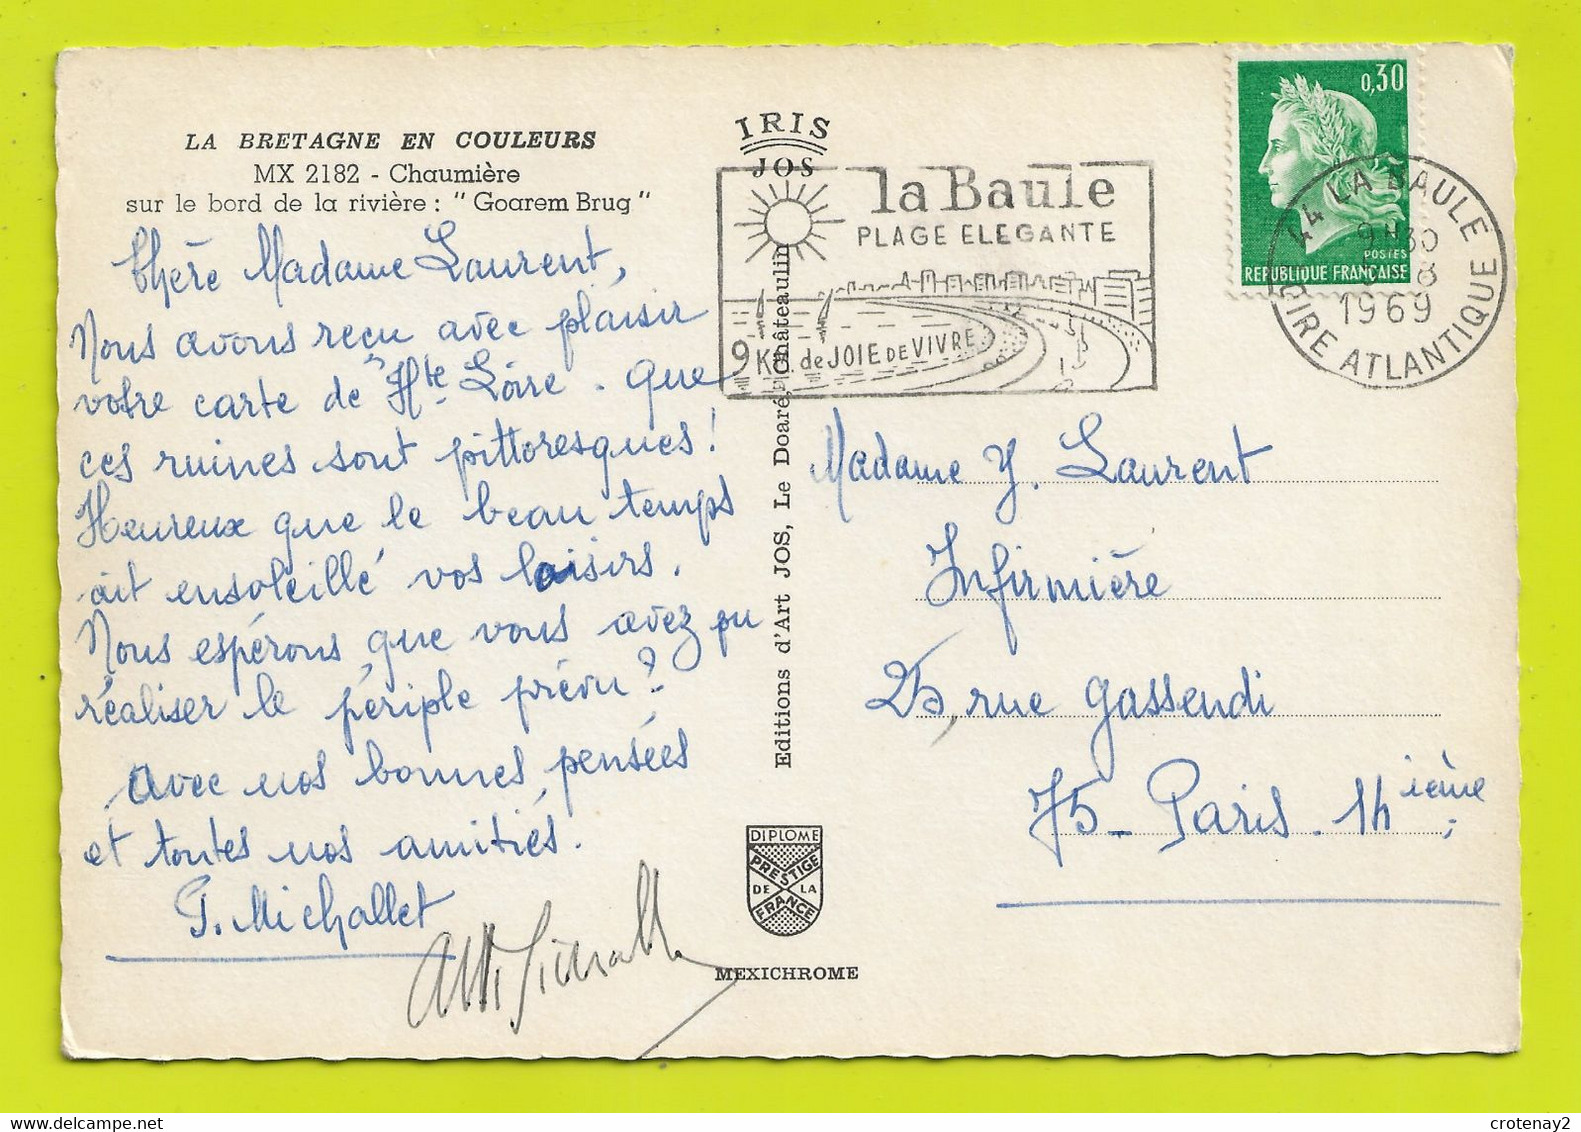 LA BRETAGNE EN COULEURS
MX 2182 - Chaumière
sur le bord de la rivière : " Goarem Brug "
Chère Madame Laurent,
Nous avons reçu avec plaisir
votre carte de Hte Loire. Que
ces ruines sont pittoresques !
Heureux que le beau temps
ait ensoleillé vos loisirs.
Nous espérons que vous avez pu
réaliser le périple prévu ?
Avec nos bonnes pensées
et toutes nos amitiés.
G. Michallet
IRIS
JOS
Editions d'Art JOS, Le Doaré, Châteaulin
DIPLOME
PRESTIGE
DE LA
FRANCE
MEXICHROME
la Baule
PLAGE ELEGANTE
9 Km. de JOIE DE VIVRE
0,30
POSTES
REPUBLIQUE FRANÇAISE
44 LA BAULE
9H30
8
1969
LOIRE ATLANTIQUE
Madame Y. Laurent
Infirmière
25, rue Gassendi
75 - Paris. 14 ième
crotenay2